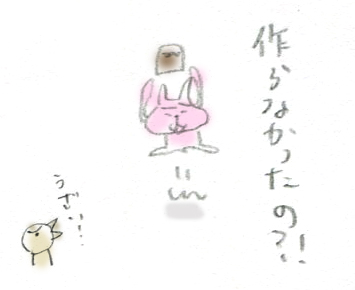 作らなかったの?!
うざい!